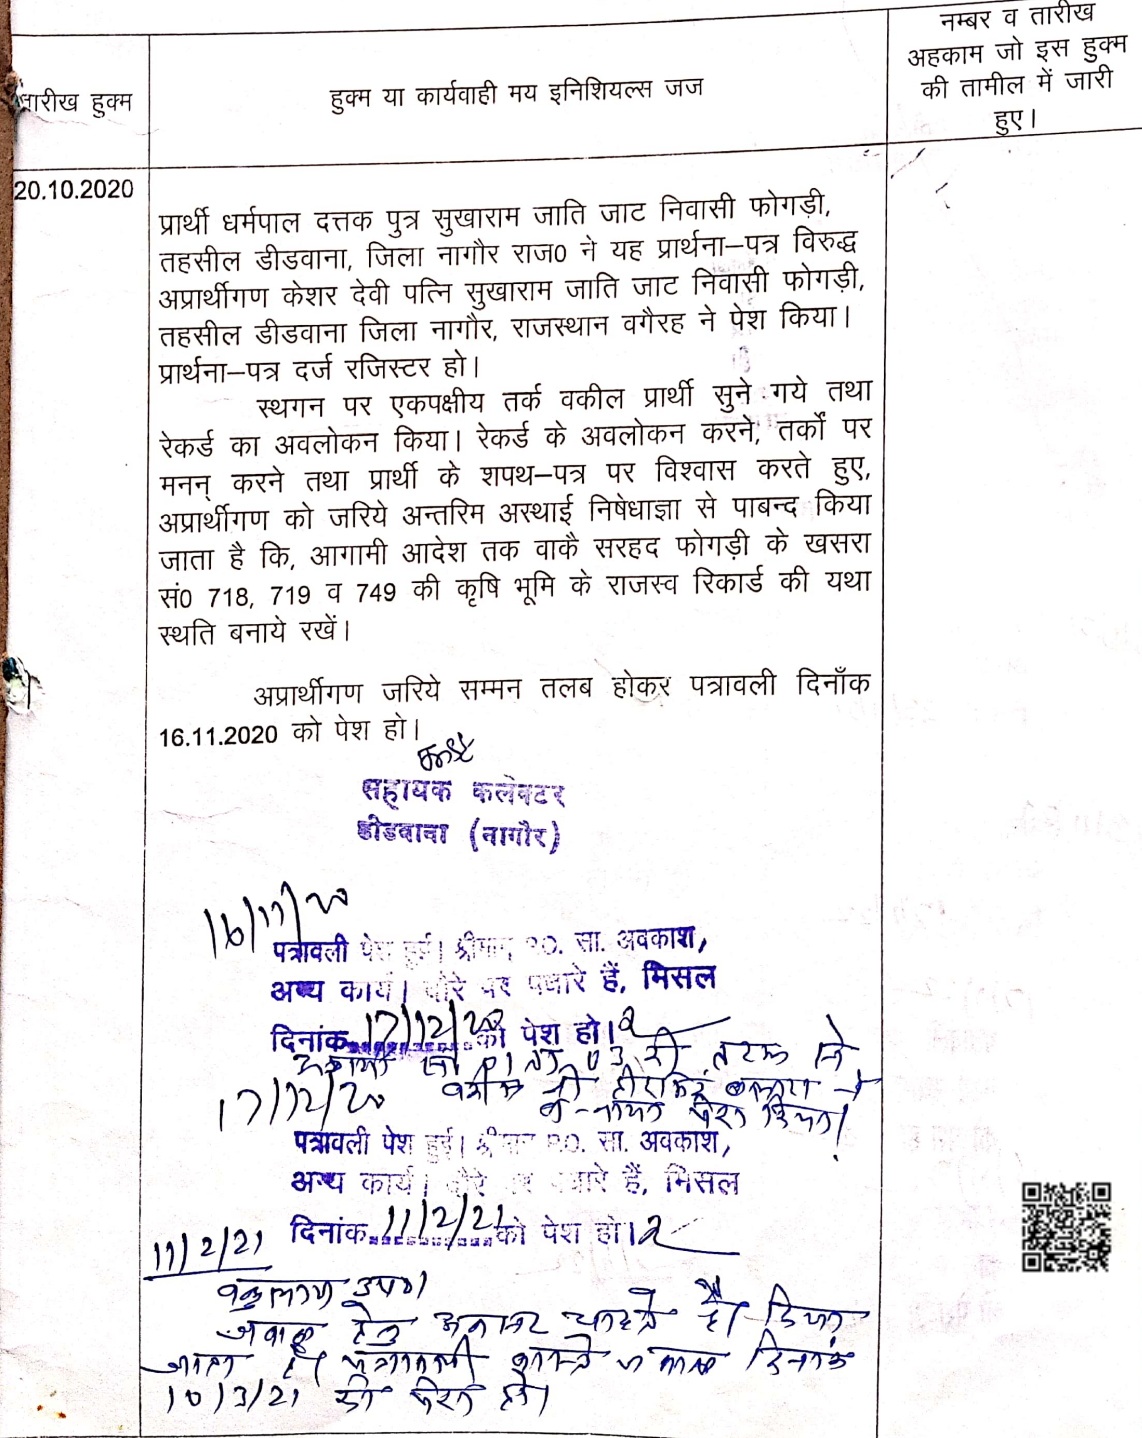 तारीख हुक्म
हुक्म या कार्यवाही मय इनिशियल्स जज
नम्बर व तारीख
अहकाम जो इस हुक्म
की तामील में जारी
हुए।
20.10.2020
प्रार्थी धर्मपाल दत्तक पुत्र सुखाराम जाति जाट निवासी फोगड़ी,
तहसील डीडवाना, जिला नागौर राज0 ने यह प्रार्थना–पत्र विरुद्ध
अप्रार्थीगण केशर देवी पत्नि सुखाराम जाति जाट निवासी फोगड़ी,
तहसील डीडवाना जिला नागौर, राजस्थान वगैरह ने पेश किया।
प्रार्थना–पत्र दर्ज रजिस्टर हो।
स्थगन पर एकपक्षीय तर्क वकील प्रार्थी सुने गये तथा
रेकर्ड का अवलोकन किया। रेकर्ड के अवलोकन करने, तर्कों पर
मनन् करने तथा प्रार्थी के शपथ–पत्र पर विश्वास करते हुए,
अप्रार्थीगण को जरिये अन्तरिम अस्थाई निषेधाज्ञा से पाबन्द किया
जाता है कि, आगामी आदेश तक वाकै सरहद फोगड़ी के खसरा
सं0 718, 719 व 749 की कृषि भूमि के राजस्व रिकार्ड की यथा
स्थति बनाये रखें।
अप्रार्थीगण जरिये सम्मन तलब होकर पत्रावली दिनाँक
16.11.2020 को पेश हो।
सहायक कलेक्टर
डीडवाना (नागौर)
16/11/20
पत्रावली पेश हुई। श्रीमान् P.O. सा. अवकाश,
अन्य कार्य। दौरे पर पधारे हैं, मिसल
दिनांक 17/12/20 को पेश हो।
की तरफ से
वकील श्री
पेश किया।
17/12/20
पत्रावली पेश हुई। श्रीमान P.O. सा. अवकाश,
अन्य कार्य। दौरे पर पधारे हैं, मिसल
दिनांक 11/2/21 को पेश हो।
11/2/21
वकुलाय उप०।
जवाब हेतु अवसर चाहते है। दिया
जाता है। पत्रावली वास्ते जवाब दिनांक
10/3/21 को पेश हो।